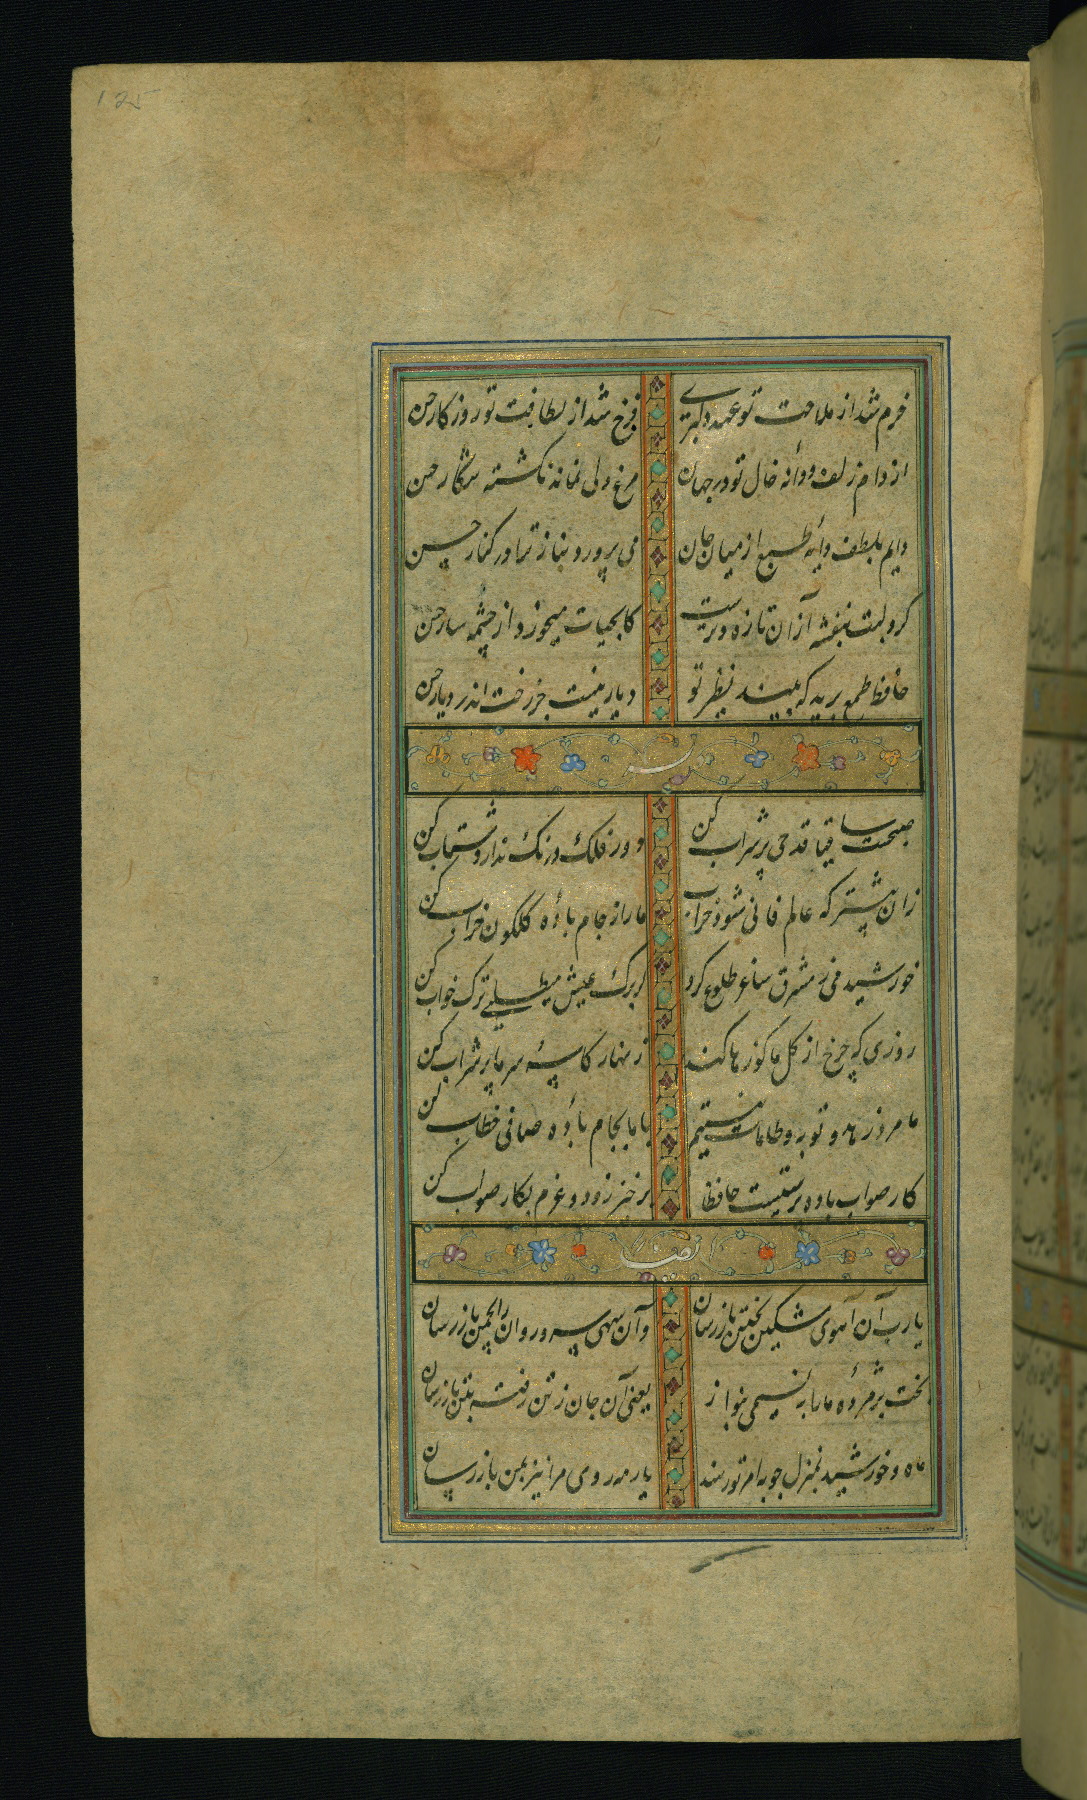 125
خرم شد از ملاحت تو عهد دلبری فرخ شد از لطافت تو روزگار حسن
از دام زلف و دانه خال تو در جهان مرغ دلی نماند نگشته شکار حسن
دایم بلطف دایه طبع از میان جان می پرورد بناز ترا در کنار حسن
گرد لبت بنفشه از آن تازه و ترست کابحیات میخورد از چشمه سار حسن
حافظ طمع برید که بیند نظیر تو دیار نیست جز رخت اندر دیار حسن
صبحست ساقیا قدحی پر شراب کن دور فلک درنک ندارد شتاب کن
زان پیشتر که عالم فانی شود خراب ما را ز جام باده گلگون خراب کن
خورشید می ز مشرق ساغر طلوع کرد گر برک عیش میطلبی ترک خواب کن
روزی که چرخ از گل ما کوزها کند زنهار کاسه سر ما پر شراب کن
ما مرد زهد و توبه و طامات نیستیم با ما بجام باده صافی خطاب کن
کار صواب باده پرستیست حافظا برخیز زود و عزم بکار صواب کن
یا رب آن آهوی مشکین بختن باز رسان وآن سهی سرو روان را بچمن باز رسان
بخت پژمرده ما را به نسیمی بنواز یعنی آن جان ز تن رفته بتن باز رسان
ماه و خورشید بمنزل چو بامر تو رسند یار مه روی مرا نیز بمن باز رسان